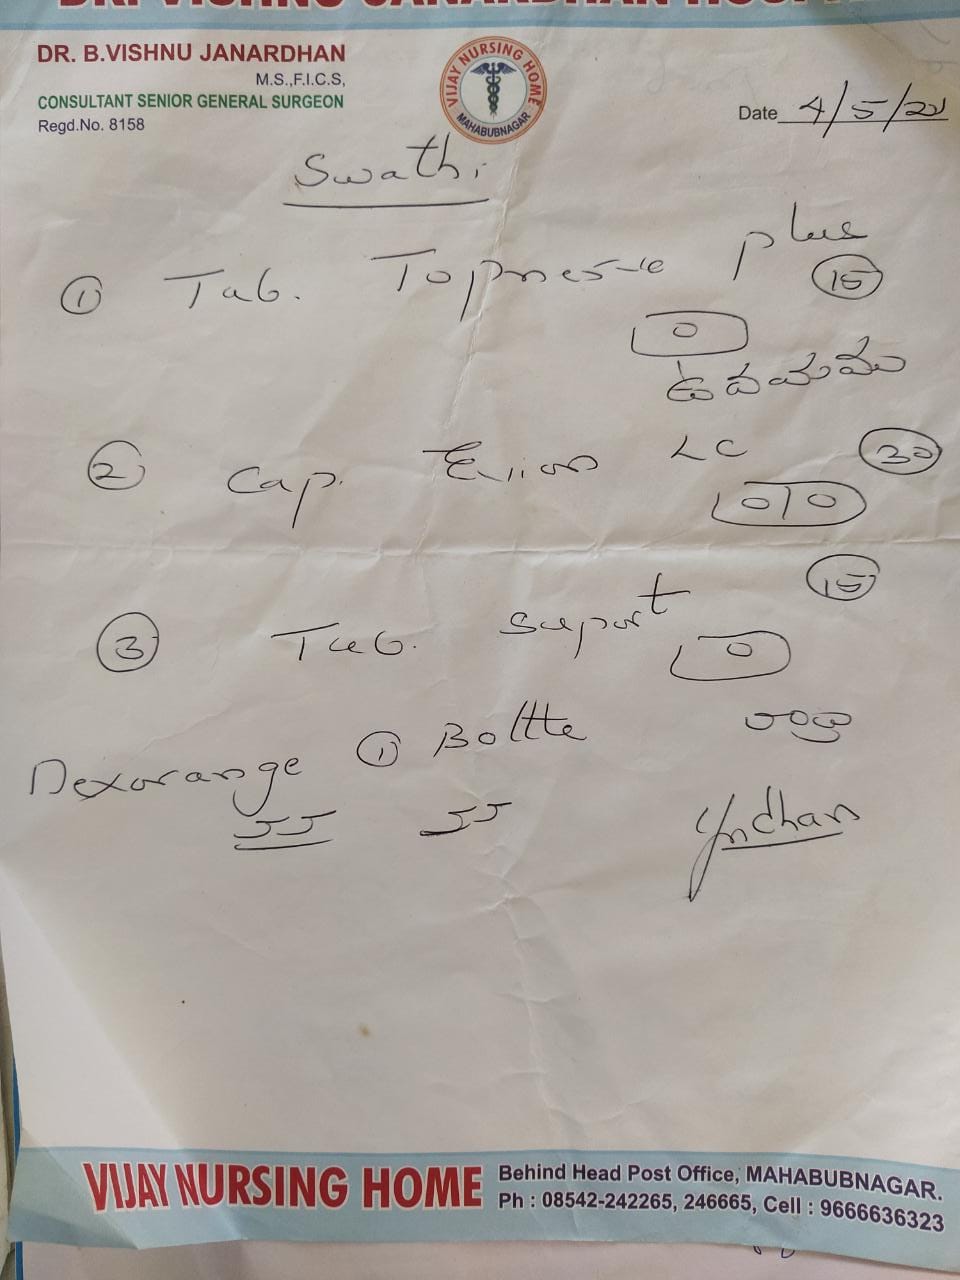 DR. B.VISHNU JANARDHAN
M.S.,F.I.C.S,
CONSULTANT SENIOR GENERAL SURGEON
Regd.No. 8158
VIJAY NURSING HOME
MAHABUBNAGAR
Date 4/5/21
Swathi
① Tab. plus
⑮
ఉదయము
② Cap. LC ㉚
0/0
⑮
③ Tab. Suport
Dexorange ① Bottle
VIJAY NURSING HOME
Behind Head Post Office, MAHABUBNAGAR.
Ph : 08542-242265, 246665, Cell : 9666636323